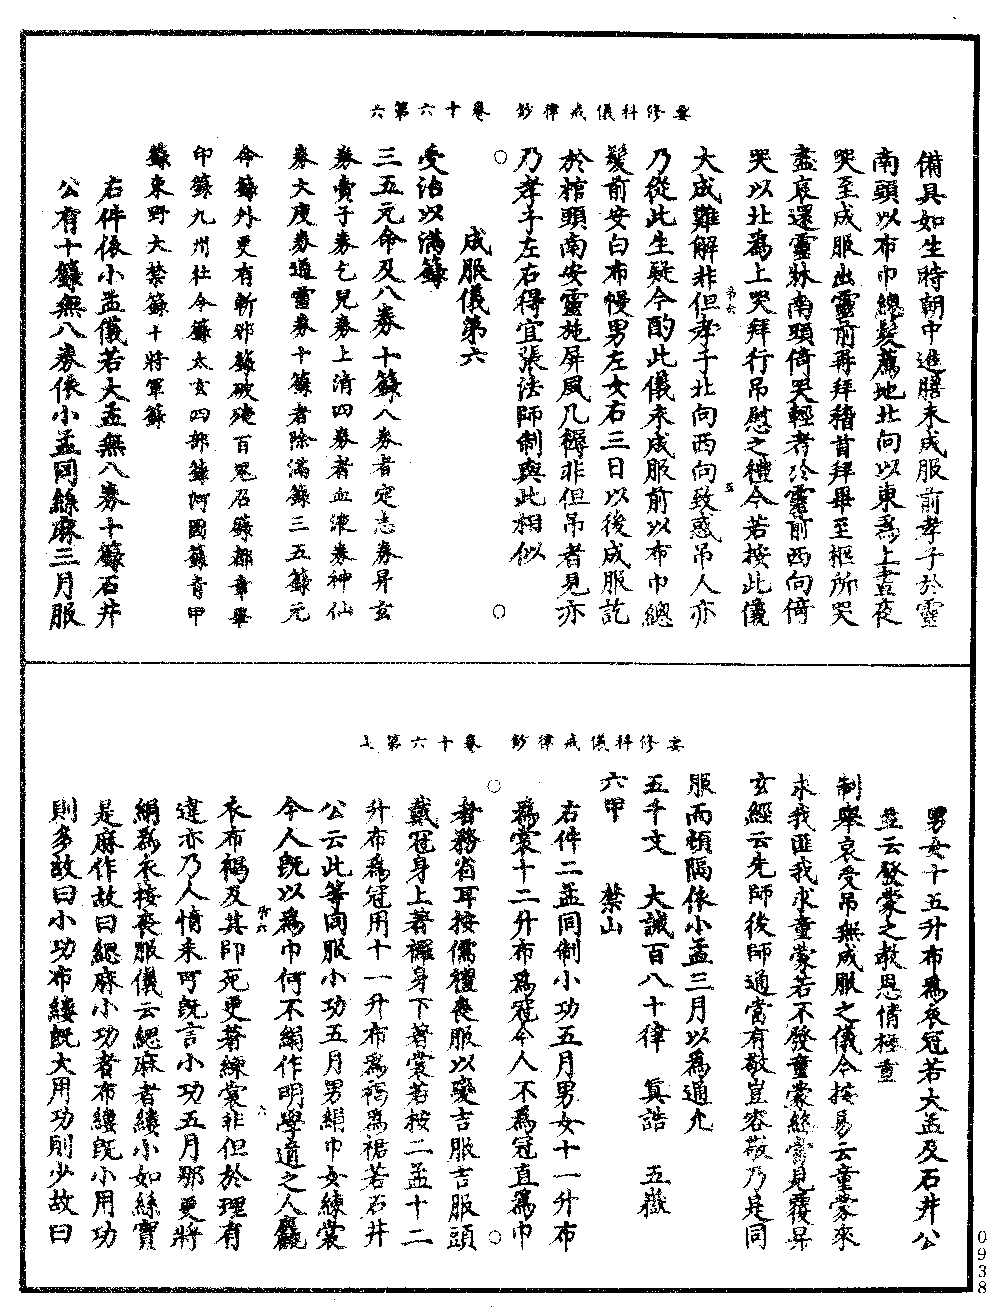 要修科儀戒律鈔　卷十六第六
備具如生時朝中進膳未成服前孝子於靈
南頭以布巾總髮薦地北向以東爲上晝夜
哭至成服出靈前再拜稽首拜畢至柩所哭
盡哀還靈牀南頭倚哭輕者於靈前西向倚
哭以北爲上哭拜行弔慰之禮今若按此儀
大成難解非但孝子北向西向致惑弔人亦
乃從此生疑今酌此儀未成服前以布巾總
髮前安白布幔男左女右三日以後成服訖
於棺頭南安靈施屏風几褥非但弔者見亦
乃孝子左右得宜張法師制與此相似
成服儀第六
受治以滿籙
三五元命及八券十籙八券者定志券昇玄
券賣子券乞兒券上清四券者血液券神仙
券大度券通靈券十籙者除滿籙三五籙元
命籙外更有斬邪籙破殗百鬼召籙都章畢
印籙九州社令籙太玄四部籙河圖籙青甲
籙東野大禁籙十將軍籙
右件依小孟儀若大孟無八券十籙石井
公有十籙無八券依小孟同緦麻三月服
要修科儀戒律鈔　卷十六第七
男女十五升布爲衣冠若大孟及石井公
並云發蒙之敎恩情極重
制舉哀受弔無成服之儀今按易云童蒙來
求我匪我求童蒙若不發童蒙緣當見覆昇
玄經云先師後師通當有敬豈容敬乃是同
服而頓隔依小孟三月以爲通允
五千文　大誡百八十律　眞誥　五嶽
六甲　禁山
右件二孟同制小功五月男女十一升布
爲裳十二升布爲冠今人不爲冠直爲巾
者務省耳按儒禮喪服以變吉服吉服頭
戴冠身上著褐身下著裳若按二孟十二
升布爲冠用十一升布爲褐爲裙若石井
公云此等同服小功五月男絹巾女練裳
今人旣以爲巾何不絹作明學道之人麤
衣布褐及其師死更著練裳非但於理有
違亦乃人情未可旣言小功五月那更將
絹爲衣按喪服儀云緦麻者縷小如絲實
是麻作故曰緦麻小功者布縷旣小用功
則多故曰小功布縷旣大用功則少故曰
0938